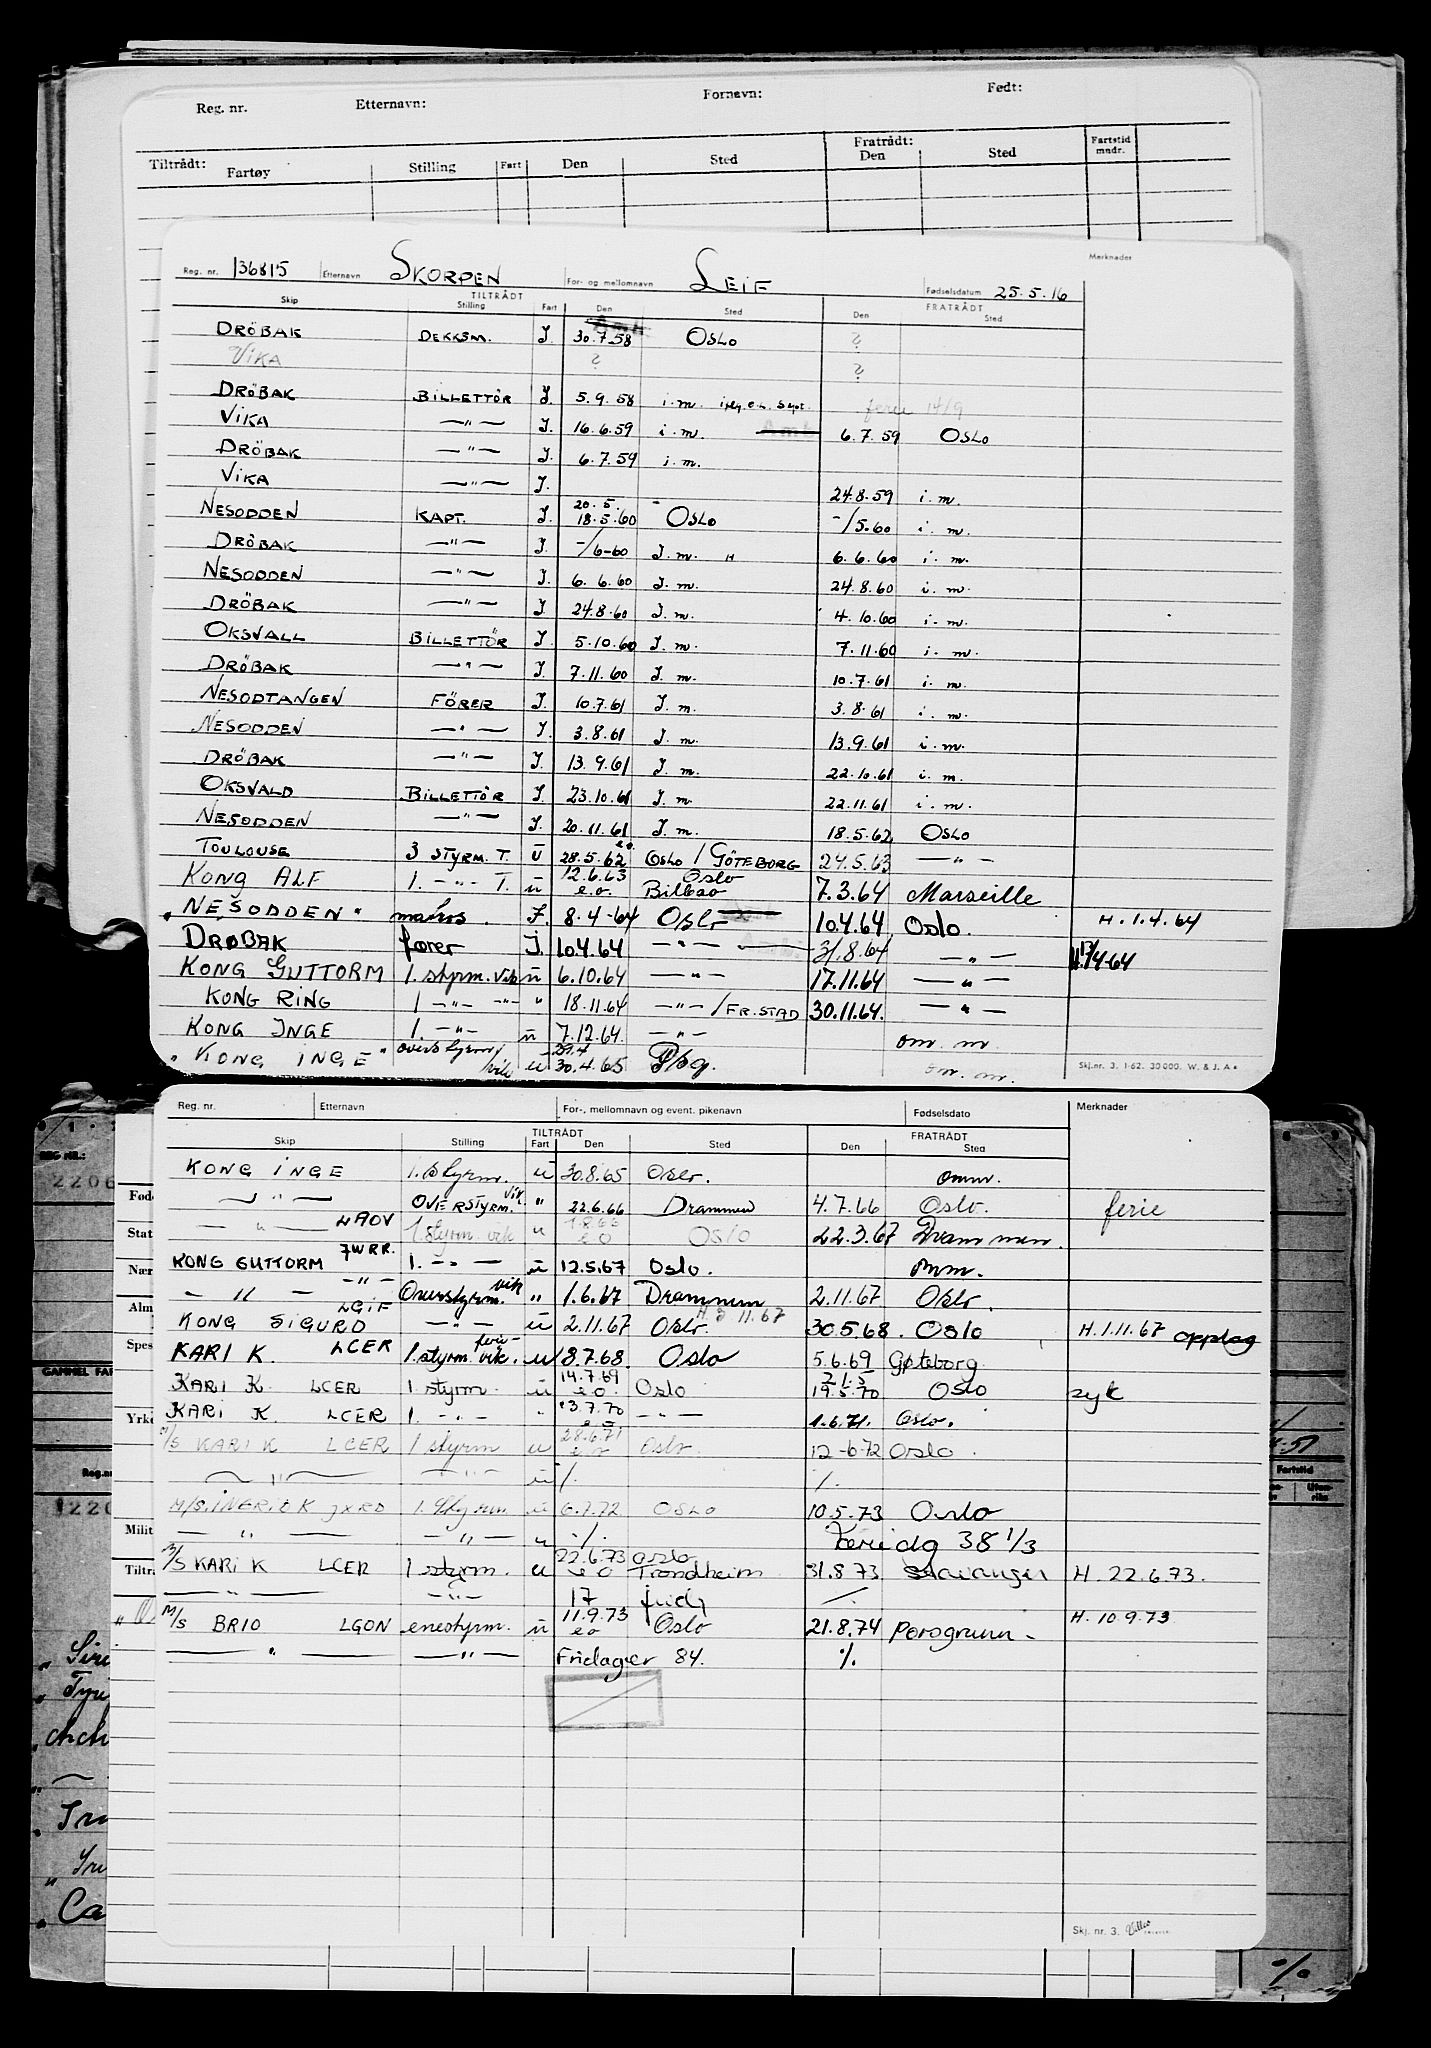 Reg. nr. Etternavn: Fornavn: Født:
Tiltrådt: Fratrådt:
Fartøy Stilling Fart Den Sted Den Sted Fartstid mndr.
Reg. nr. 136815 Etternavn SKORPEN For- og mellomnavn LEIF Fødselsdatum 25.5.16 Merknader
TILTRÅDT FRATRÅDT
Skip Stilling Fart Den Sted Den Sted
DRÖBAK DEKKSM. I. 30.7.58 OSLO ?
VIKA ? ?
DRÖBAK BILLETTÖR I. 5.9.58 i.m. ferie 14/9
VIKA —"— I. 16.6.59 i.m. 6.7.59 OSLO
DRÖBAK —"— I. 6.7.59 i.m.
VIKA —"— I. 24.8.59 i.m.
NESODDEN KAPT. I. 20.5. 18.5.60 OSLO -/5.60 i.m.
DRÖBAK —"— I. -/6-60 I.m. H 6.6.60 i.m.
NESODDEN —"— I. 6.6.60 I.m. 24.8.60 i.m.
DRÖBAK —"— I. 24.8.60 I.m. 4.10.60 i.m.
OKSVALL BILLETTÖR I. 5.10.60 I.m. 7.11.60 i.m.
DRÖBAK —"— I. 7.11.60 I.m. 10.7.61 i.m.
NESODTANGEN FÖRER I. 10.7.61 I.m. 3.8.61 i.m.
NESODDEN —"— I. 3.8.61 I.m. 13.9.61 i.m.
DRÖBAK —"— I. 13.9.61 I.m. 22.10.61 i.m.
OKSVALD BILLETTÖR I. 23.10.61 I.m 22.11.61 i.m.
NESODDEN —"— I. 20.11.61 I.m. 18.5.62 OSLO
TOULOUSE 3 STYRM. T. u 28.5.62 e.o. OSLO / GÖTEBORG 24.5.63 —"—
KONG ALF 1. —"— T. u 12.6.63 e.o. Oslo Bilbao 7.3.64 Marseille
"NESODDEN" matros. I. 8.4-64 Oslo 10.4.64 Oslo. H.1.4.64
DRØBAK fører I. 10.4.64 —"— 31.8.64 —"— H.13/4-64
KONG GUTTORM 1. styrm. vik u 6.10.64 —"— 17.11.64 —"—
KONG RING 1 —"— —"— " 18.11.64 —"—/FR.STAD 30.11.64. —"—
KONG INGE 1. —"— u 7.12.64. —"— om. m.
"KONG INGE" overstyrm/vik u 29.4 30.4.65 Pbg. om. m.
Skj.nr. 3. 1-62. 30 000. W. & J. A
Reg. nr. Etternavn For-, mellomnavn og event. pikenavn Fødselsdato Merknader
TILTRÅDT FRATRÅDT
Skip Stilling Fart Den Sted Den Sted
KONG INGE 1. styrm. u 30.8.65 Oslo. omm.
—"— OVERSTYRM. vik. " 22.6.66 Drammen 4.7.66 Oslo. ferie
—"— LAOV 1 styrm. vik u 1.8.66 e o Oslo 22.3.67 Drammen.
KONG GUTTORM JWRR. 1. —"— u 12.5.67 Oslo. omm.
—"— —"— Overstyrm. vik " 1.6.67 Drammen 2.11.67 Oslo.
KONG SIGURD LGIF —"— u 2.11.67 Oslo. H. 3 11.67 30.5.68. Oslo H.1.11.67 opplag
KARI K. LCER 1 styrm. ferie-vik. u 8.7.68. Oslo 5.6.69 Gøteborg
KARI K. LCER 1 styrm. u 14.7.69 e o. Oslo 21.5 19.5.70 Oslo syk
KARI K. LCER 1. —"— " 3.7.70 e o —"— 1.6.71. Oslo.
M/S KARI K LCER 1 styrm u 28.6.71 e o Oslo. 12-6-72 Oslo
—"— —"— u % %
M/S. INGRID K JXRD 1. Styrm u 6.7.72 OSLO 10.5.73 Oslo
—"— —"— u % Feriedg 38 1/3
M/S KARI K LCER 1 styrm. u 22.6.73 e o Oslo Trondheim 31.8.73 Stavanger H. 22.6.73.
—"— —"— 17 fridg %
M/S BRIO LGON enestyrm. u 11.9.73 eo Oslo 21.8.74 Porsgrunn - H. 10 9.73
—"— —"— Fridager 84. %
Skj. nr. 3.
REG NR.:
2206
Fød
Stat
Nær
Alm
Spes
GAMMEL FAR
Yrke
Reg.n
1220
Milit
Tiltr
Fartstid
Siri
Ca
%